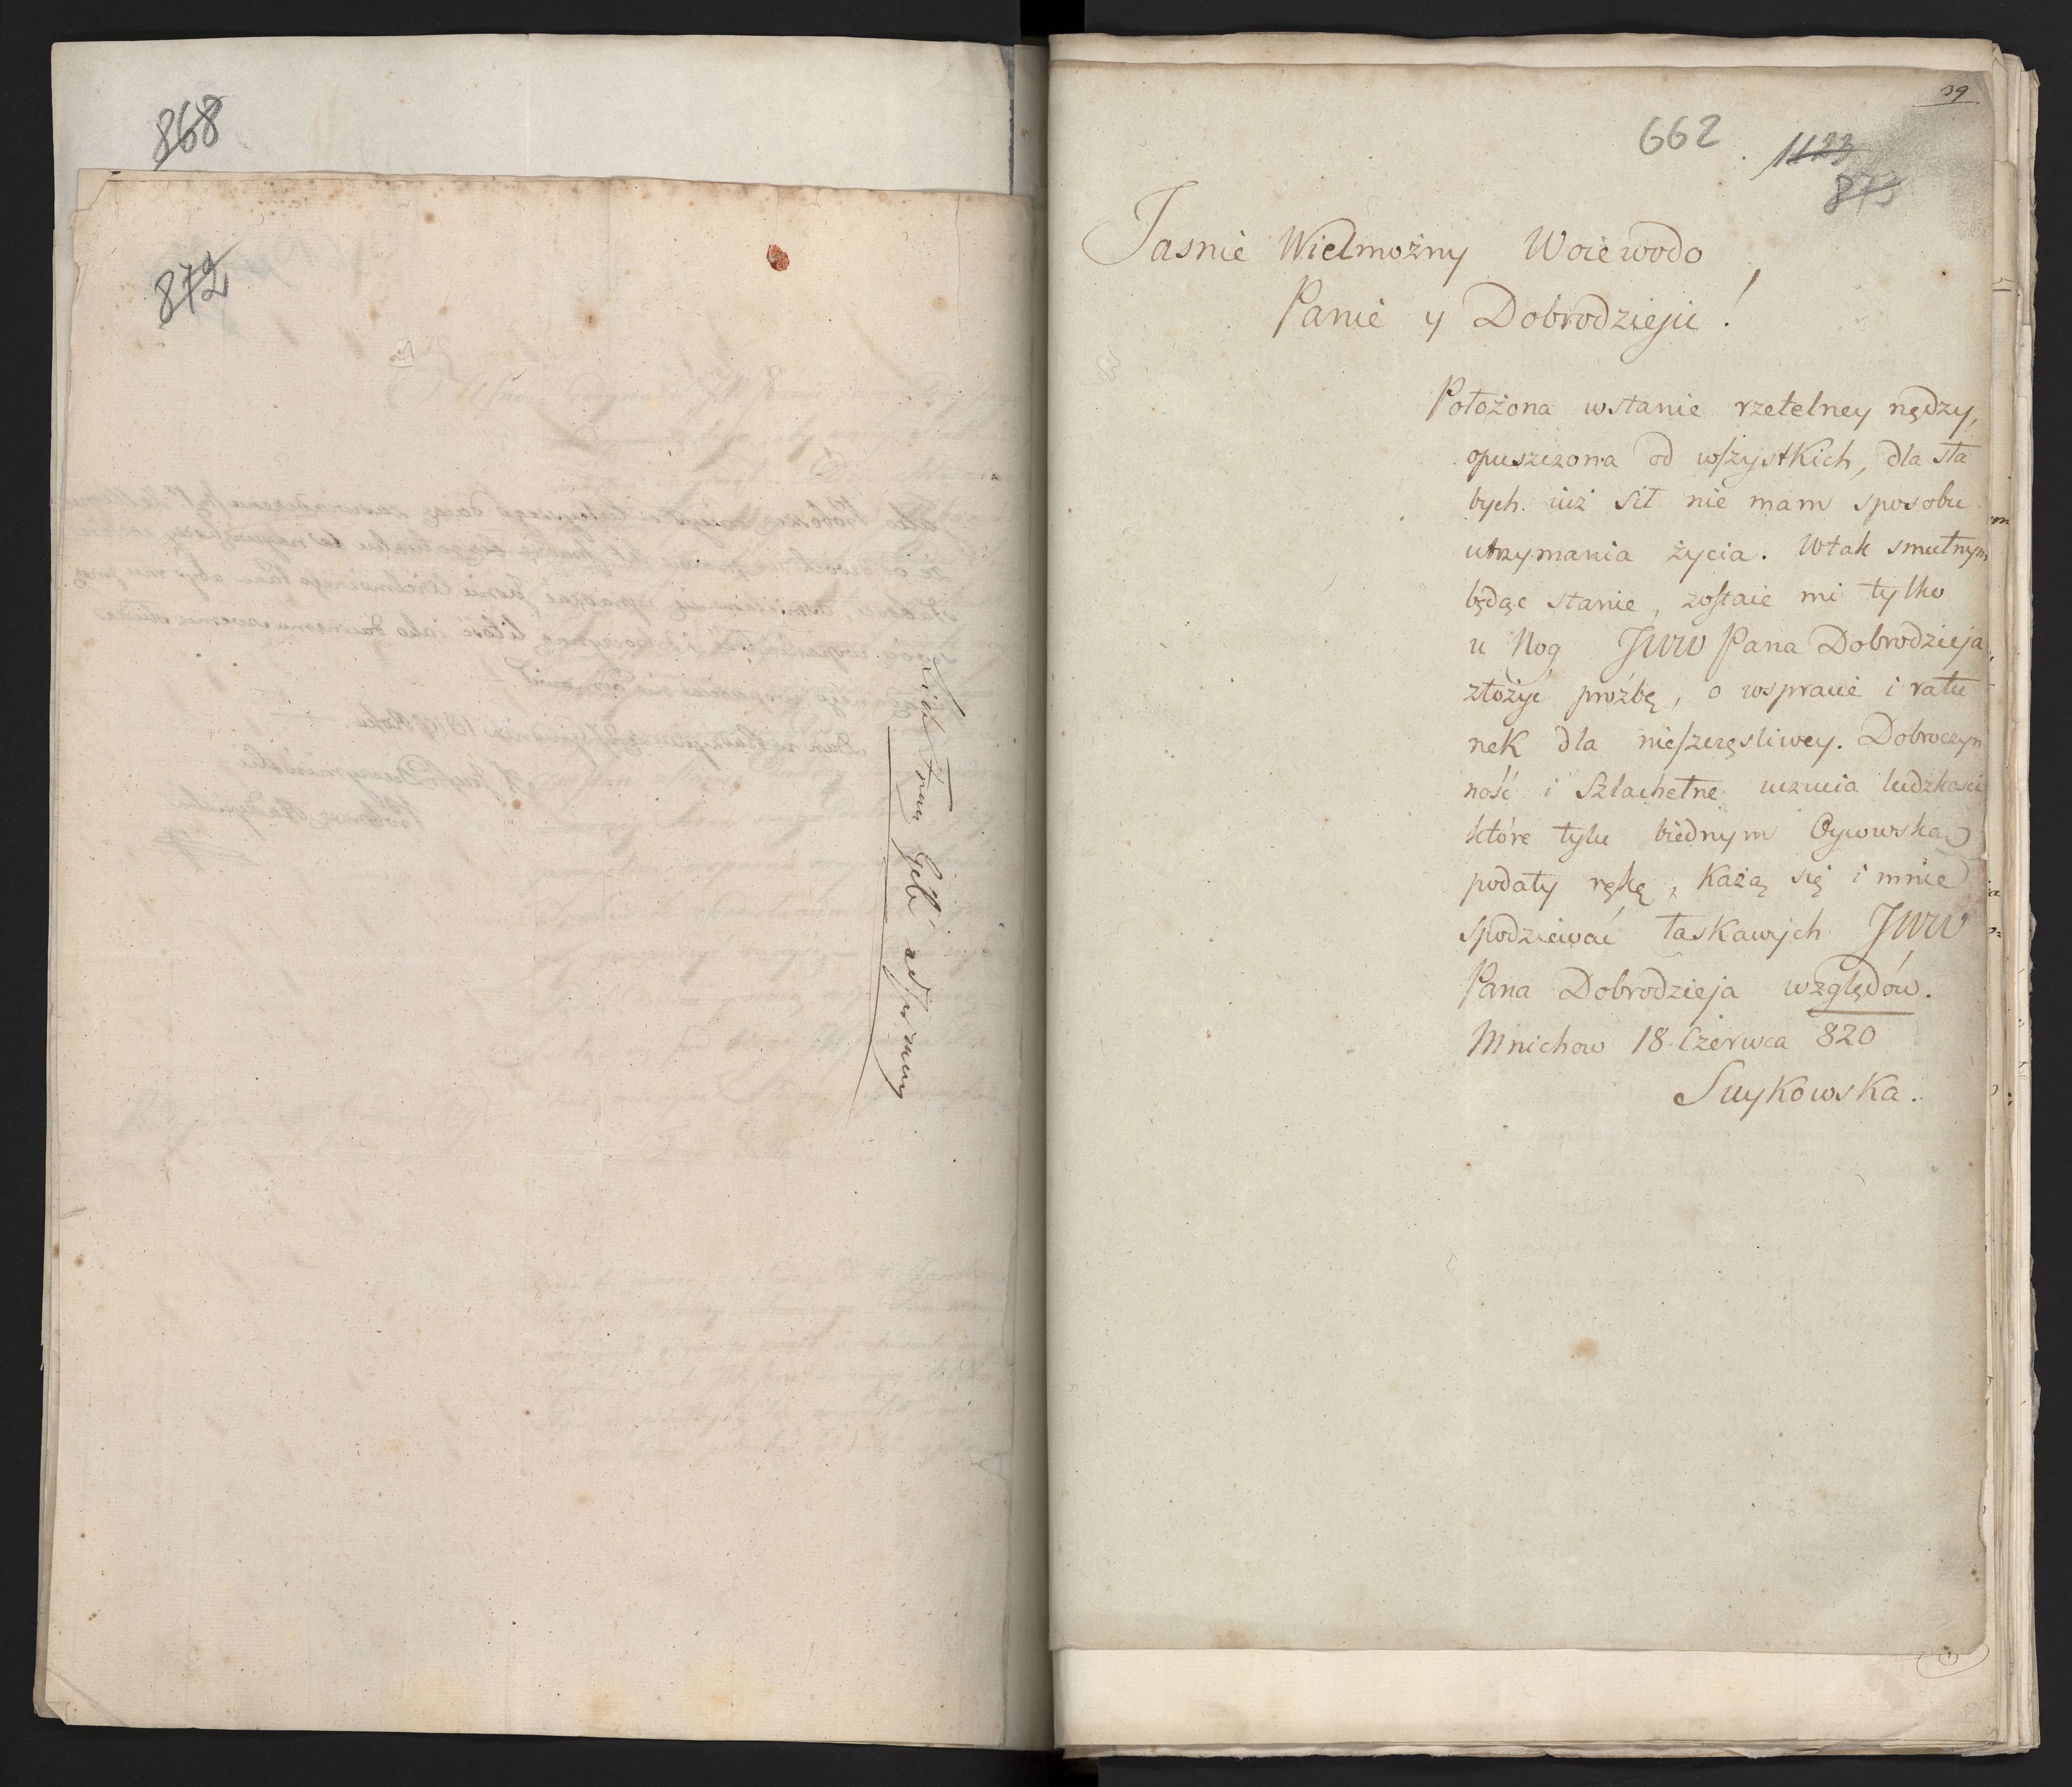 868
872
List Fran Gebl
39
662
1123
873
Jasnie Wielmożny Woiewodo
Panie y Dobrodzieju!
Położona wstanie rzetelney nędzy,
opuszczona od wszystkich, dla sła
bych iuż sił nie mam sposobu
utrzymania życia. Wtak smutnym
będąc stanie, zostaie mi tylko
u Nog JWW Pana Dobrodzieja,
złożyć proźbę, o wsparcie i ratu
nek dla nieszczęsliwey. Dobroczyn
ność i Szlachetne uczucia ludzkosci
które tylu biednym Oycowską
podały rękę, Każą się i mnie
spodziewać łaskawych JWW
Pana Dobrodzieja względów.
Mnichow 18. Czerwca 820
Suykowska.